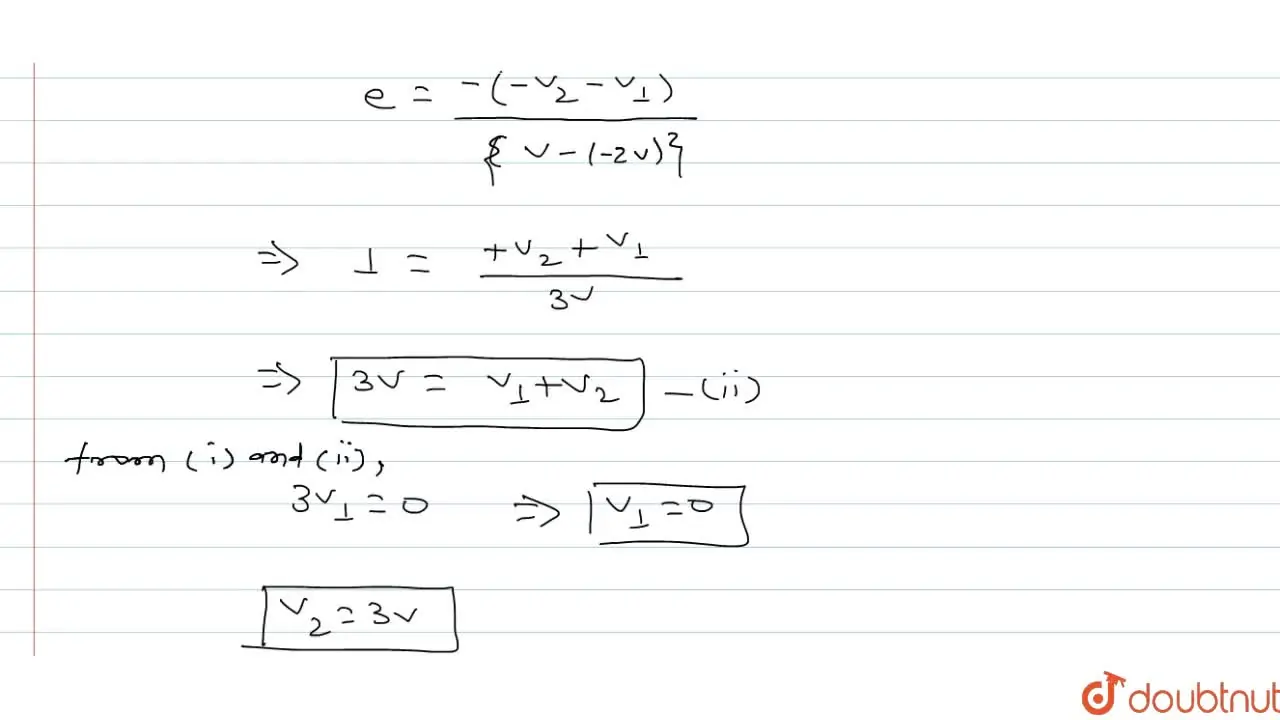 e = -(-v₂ - v₁) / { v - (-2v)² }
⇒ 1 = +v₂ + v₁ / 3v
⇒ 3v = v₁ + v₂ - (ii)
from (i) and (ii),
3v₁ = 0 ⇒ v₁ = 0
v₂ = 3v
doubtnut